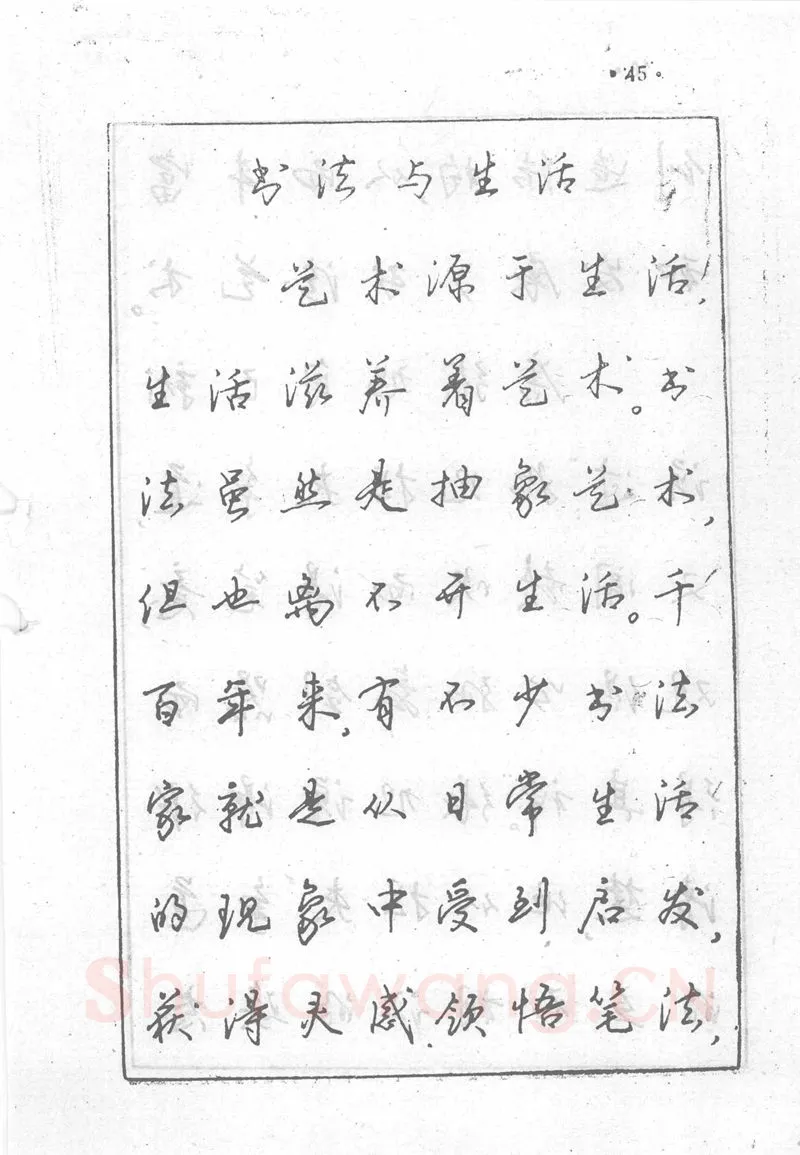 ·45·
书法与生活
艺术源于生活,
生活滋养着艺术。书
法虽然是抽象艺术,
但也离不开生活。千
百年来,有不少书法
家就是从日常生活
的现象中受到启发,
获得灵感,领悟笔法,
Shufawang.CN